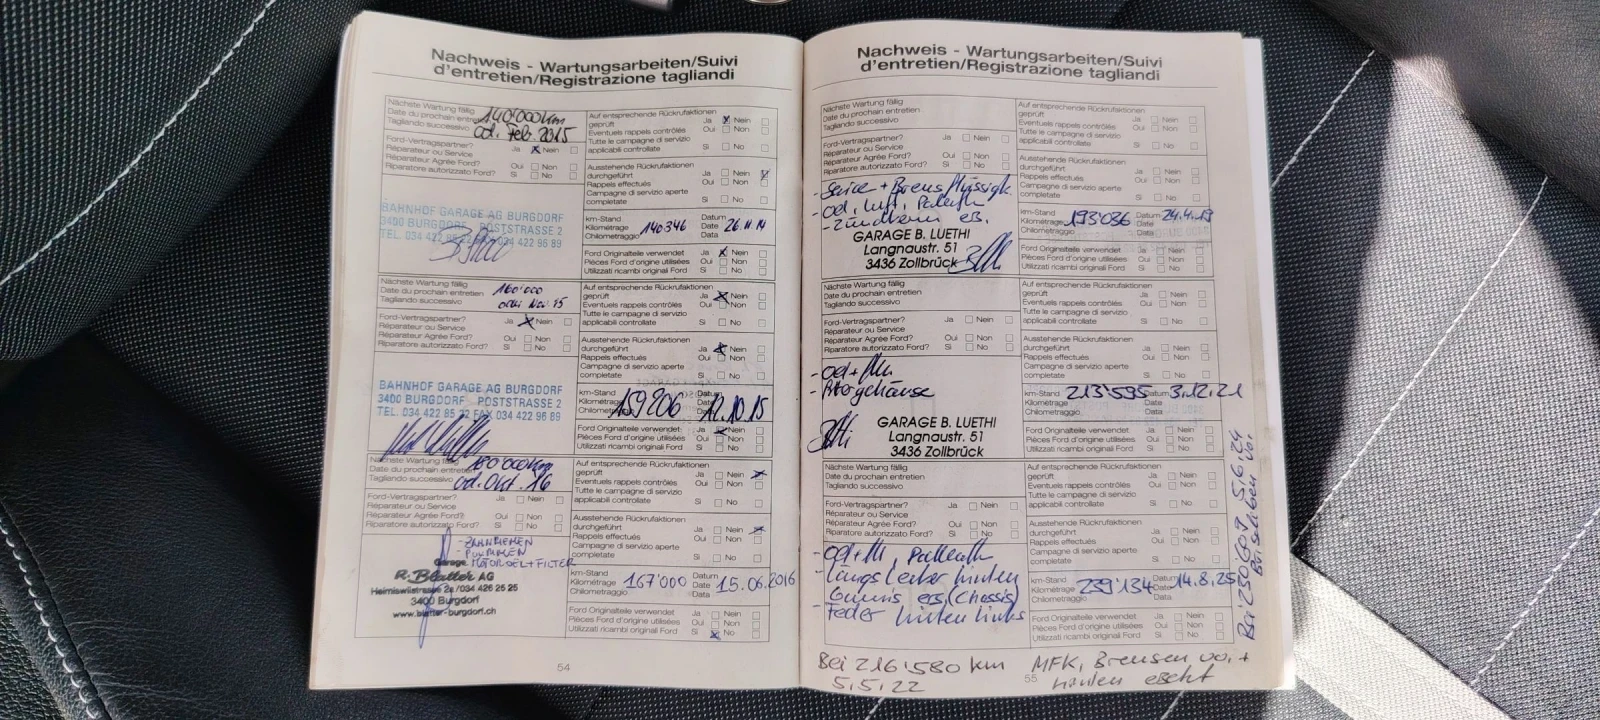 Nachweis - Wartungsarbeiten/Suivi
d'entretien/Registrazione tagliandi
Nächste Wartung fällig
Date du prochain entretien
Tagliando successivo
140'000 km
od. Feb. 2015
Ford-Vertragspartner?
Réparateur ou Service
Réparateur Agrée Ford?
Riparatore autorizzato Ford?
Ja Nein
Oui Non
Si No
BAHNHOF GARAGE AG BURGDORF
3400 BURGDORF POSTSTRASSE 2
TEL. 034 422 85 22 FAX 034 422 96 89
Auf entsprechende Rückrufaktionen
geprüft
Eventuels rappels contrôlés
Tutte le campagne di servizio
applicabili controllate
Ja Nein
Oui Non
Si No
Ausstehende Rückrufaktionen
durchgeführt
Rappels effectués
Campagne di servizio aperte
completate
Ja Nein
Oui Non
Si No
km-Stand
Kilométrage
Chilometraggio
140346
Datum
Date
Data
26.11.14
Ford Originalteile verwendet
Pièces Ford d'origine utilisées
Utilizzati ricambi originali Ford
Ja Nein
Oui Non
Si No
Nächste Wartung fällig
Date du prochain entretien
Tagliando successivo
160'000
Ford-Vertragspartner?
Réparateur ou Service
Réparateur Agrée Ford?
Riparatore autorizzato Ford?
Ja Nein
Oui Non
Si No
BAHNHOF GARAGE AG BURGDORF
3400 BURGDORF POSTSTRASSE 2
TEL. 034 422 85 22 FAX 034 422 96 89
Auf entsprechende Rückrufaktionen
geprüft
Eventuels rappels contrôlés
Tutte le campagne di servizio
applicabili controllate
Ja Nein
Oui Non
Si No
Ausstehende Rückrufaktionen
durchgeführt
Rappels effectués
Campagne di servizio aperte
completate
Ja Nein
Oui Non
Si No
km-Stand
Kilométrage
Chilometraggio
159206
Datum
Date
Data
12.10.15
Ford Originalteile verwendet
Pièces Ford d'origine utilisées
Utilizzati ricambi originali Ford
Ja Nein
Oui Non
Si No
Nächste Wartung fällig
Date du prochain entretien
Tagliando successivo
180'000 km
od. Okt. 16
Ford-Vertragspartner?
Réparateur ou Service
Réparateur Agrée Ford?
Riparatore autorizzato Ford?
Ja Nein
Oui Non
Si No
- ZAHNRIEMEN
- MOTOROEL+FILTER
Garage
R. Blatter AG
Heimiswilstrasse 2a / 034 426 25 25
3400 Burgdorf
www.blatter-burgdorf.ch
Auf entsprechende Rückrufaktionen
geprüft
Eventuels rappels contrôlés
Tutte le campagne di servizio
applicabili controllate
Ja Nein
Oui Non
Si No
Ausstehende Rückrufaktionen
durchgeführt
Rappels effectués
Campagne di servizio aperte
completate
Ja Nein
Oui Non
Si No
km-Stand
Kilométrage
Chilometraggio
167'000
Datum
Date
Data
15.06.2016
Ford Originalteile verwendet
Pièces Ford d'origine utilisées
Utilizzati ricambi originali Ford
Ja Nein
Oui Non
Si No
54
Nachweis - Wartungsarbeiten/Suivi
d'entretien/Registrazione tagliandi
Nächste Wartung fällig
Date du prochain entretien
Tagliando successivo
Ford-Vertragspartner?
Réparateur ou Service
Réparateur Agrée Ford?
Riparatore autorizzato Ford?
Ja Nein
Oui Non
Si No
- Service + Bremsflüssigk.
- Oel, Luft, Pollenfi.
- ers.
GARAGE B. LUETHI
Langnaustr. 51
3436 Zollbrück
Auf entsprechende Rückrufaktionen
geprüft
Eventuels rappels contrôlés
Tutte le campagne di servizio
applicabili controllate
Ja Nein
Oui Non
Si No
Ausstehende Rückrufaktionen
durchgeführt
Rappels effectués
Campagne di servizio aperte
completate
Ja Nein
Oui Non
Si No
km-Stand
Kilométrage
Chilometraggio
193'036
Datum
Date
Data
24.4.19
Ford Originalteile verwendet
Pièces Ford d'origine utilisées
Utilizzati ricambi originali Ford
Ja Nein
Oui Non
Si No
Nächste Wartung fällig
Date du prochain entretien
Tagliando successivo
Ford-Vertragspartner?
Réparateur ou Service
Réparateur Agrée Ford?
Riparatore autorizzato Ford?
Ja Nein
Oui Non
Si No
- Oel + Fi.
GARAGE B. LUETHI
Langnaustr. 51
3436 Zollbrück
Auf entsprechende Rückrufaktionen
geprüft
Eventuels rappels contrôlés
Tutte le campagne di servizio
applicabili controllate
Ja Nein
Oui Non
Si No
Ausstehende Rückrufaktionen
durchgeführt
Rappels effectués
Campagne di servizio aperte
completate
Ja Nein
Oui Non
Si No
km-Stand
Kilométrage
Chilometraggio
213'595
Datum
Date
Data
3.12.21
Ford Originalteile verwendet
Pièces Ford d'origine utilisées
Utilizzati ricambi originali Ford
Ja Nein
Oui Non
Si No
Nächste Wartung fällig
Date du prochain entretien
Tagliando successivo
Ford-Vertragspartner?
Réparateur ou Service
Réparateur Agrée Ford?
Riparatore autorizzato Ford?
Ja Nein
Oui Non
Si No
- Oel + Fi, Pollenfi.
- Längslenker hinten
Gummis ers. (Chassis)
- Feder hinten links
Auf entsprechende Rückrufaktionen
geprüft
Eventuels rappels contrôlés
Tutte le campagne di servizio
applicabili controllate
Ja Nein
Oui Non
Si No
Ausstehende Rückrufaktionen
durchgeführt
Rappels effectués
Campagne di servizio aperte
completate
Ja Nein
Oui Non
Si No
km-Stand
Kilométrage
Chilometraggio
239'134
Datum
Date
Data
14.8.25
Ford Originalteile verwendet
Pièces Ford d'origine utilisées
Utilizzati ricambi originali Ford
Ja Nein
Oui Non
Si No
Bei 216'580 km
5.5.22
MFK, Bremsen vo. +
hinten ersetzt
55
Bei 230'609 5.6.24
Bremsscheiben vo.